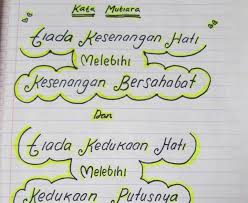 Kata Mutiara
Tiada Kesenangan Hati
Melebihi
Kesenangan Bersahabat
Dan
Tiada Kedukaan Hati
Melebihi
Kedukaan Putusnya